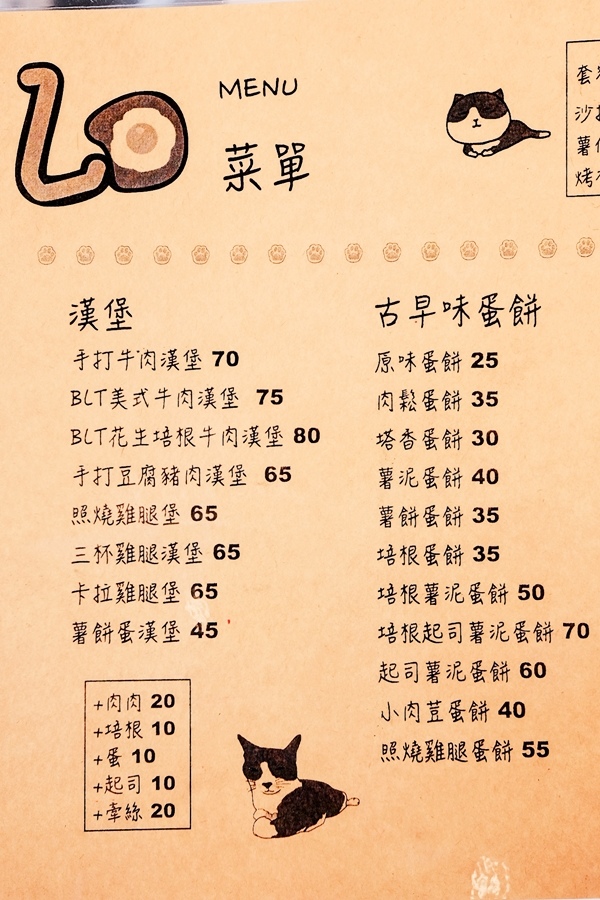 Lo
MENU
菜單
漢堡
手打牛肉漢堡 70
BLT美式牛肉漢堡 75
BLT花生培根牛肉漢堡 80
手打豆腐豬肉漢堡 65
照燒雞腿堡 65
三杯雞腿漢堡 65
卡拉雞腿堡 65
薯餅蛋漢堡 45
+肉肉 20
+培根 10
+蛋 10
+起司 10
+牽絲 20
古早味蛋餅
原味蛋餅 25
肉鬆蛋餅 35
塔香蛋餅 30
薯泥蛋餅 40
薯餅蛋餅 35
培根蛋餅 35
培根薯泥蛋餅 50
培根起司薯泥蛋餅 70
起司薯泥蛋餅 60
小肉荳蛋餅 40
照燒雞腿蛋餅 55
套
沙
薯
烤